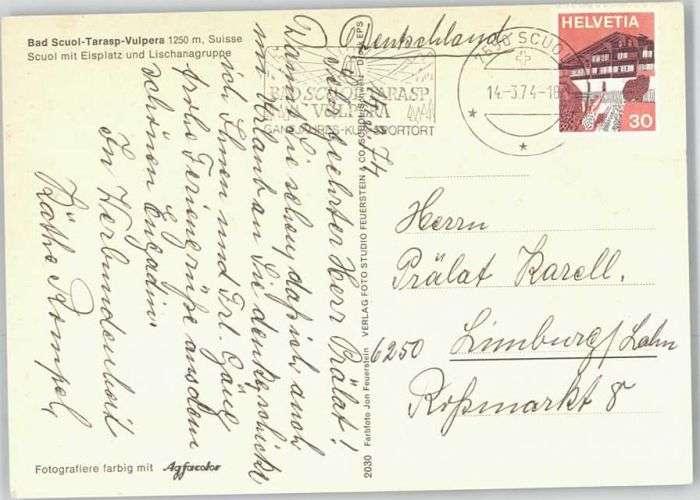 Bad Scuol-Tarasp-Vulpera 1250 m, Suisse
Scuol mit Eisplatz und Lischanagruppe
14.3.74
Sehr geehrter Herr Prälat!
Damit Sie sehen, daß ich auch
im Urlaub an Sie denke, schicke
ich Ihnen und Frl.
frohe Feriengrüße aus dem
schönen Engadin.
In Verbundenheit
Käthe Rompel
Fotografiere farbig mit Agfacolor
2030 Farbfoto Jon Feuerstein VERLAG FOTO STUDIO FEUERSTEIN & CO. SCUOL
Deutschland
BAD SCUOL TARASP
VULPERA
GANZJAHRES-KUR SPORTORT
7550 SCUOL
14-3.74-18
HELVETIA
30
Herrn
Prälat Karell.
6250 Limburg/Lahn
Roßmarkt 8